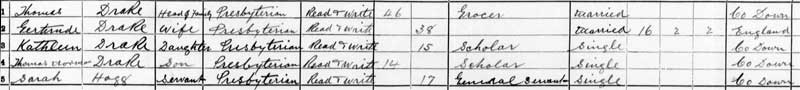 1 Thomas Drake Head of Family Presbyterian Read & Write 46 Grocer Married Co Down
2 Gertrude Drake Wife Presbyterian Read & Write 38 Married 16 2 2 England
3 Kathleen Drake Daughter Presbyterian Read & Write 15 Scholar Single Co Down
4 Thomas Drake Son Presbyterian Read & Write 14 Scholar Single Co Down
5 Sarah Hogg Servant Presbyterian Read & Write 17 General Servant Single Co Down